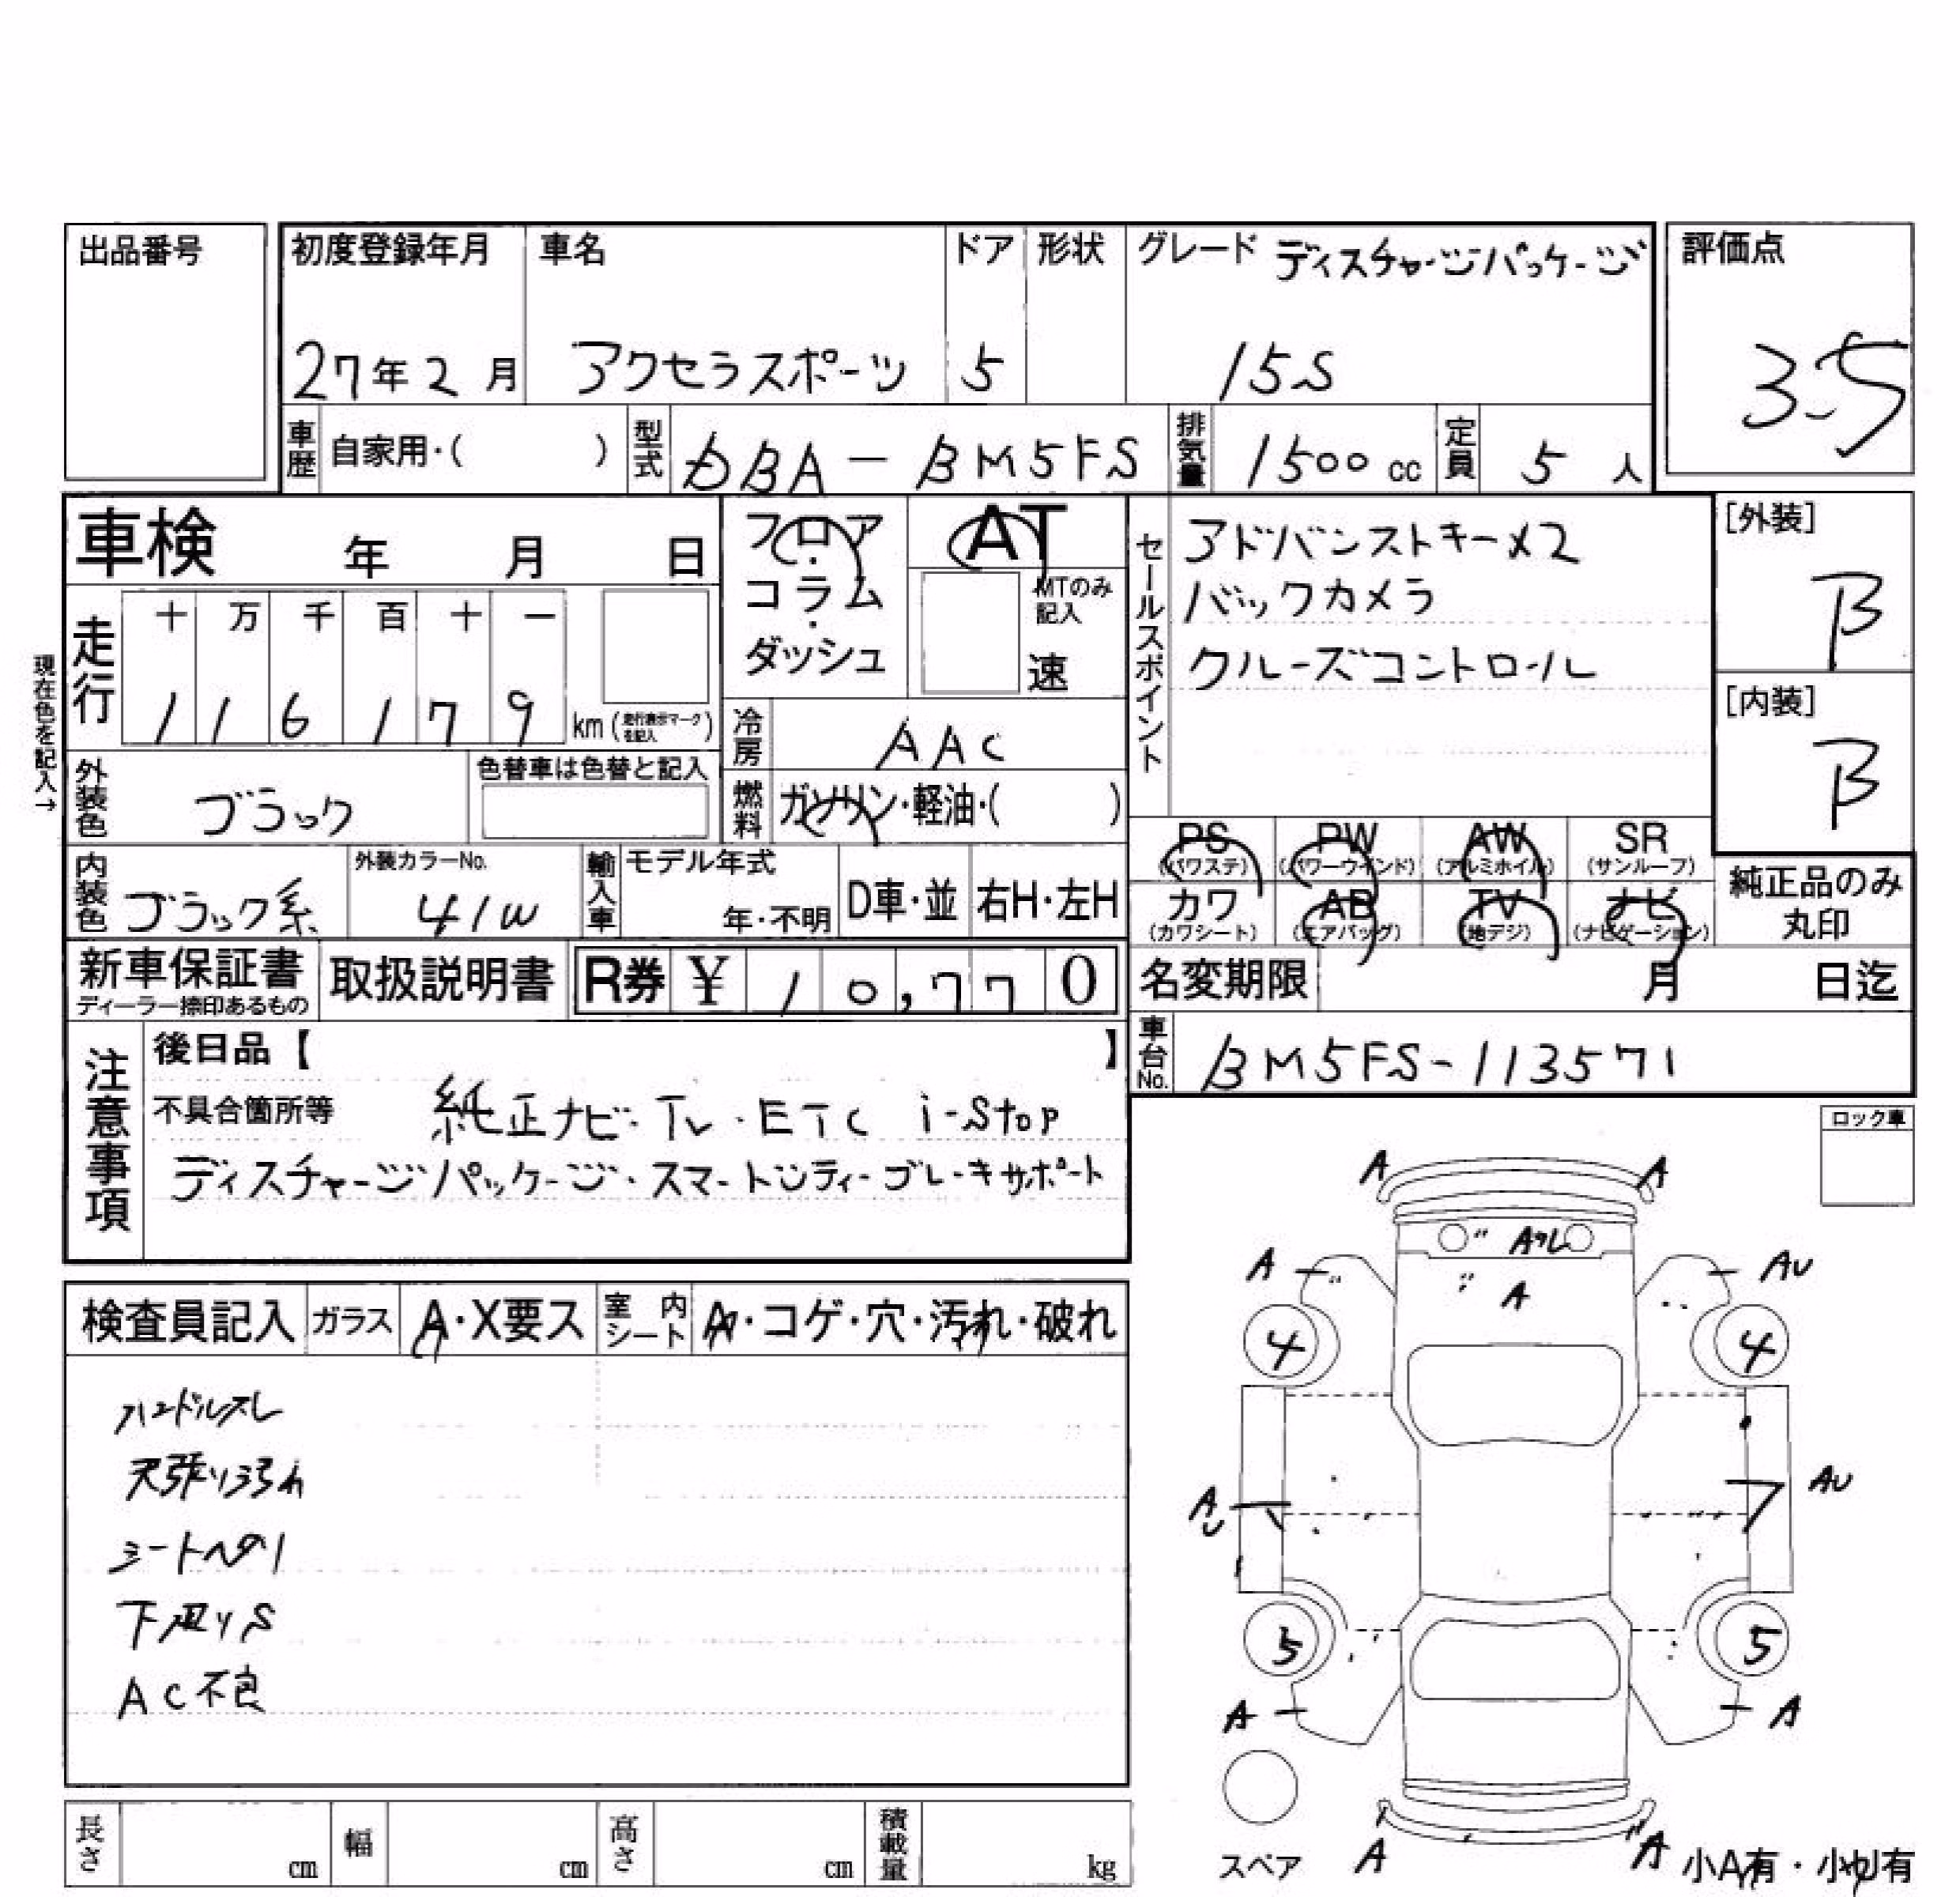 出品番号
初度登録年月 車名 ドア 形状 グレード ディスチャージパッケージ 評価点
27年2月 アクセラスポーツ 5 15S 3.5
車歴 自家用・( ) 型式 DBA-BM5FS 排気量 1500cc 定員 5人
車検 年 月 日
フロア・コラム・ダッシュ
AT
MTのみ記入
速
セールスポイント
アドバンストキーX2
バックカメラ
クルーズコントロール
[外装]
B
[内装]
B
現在色を記入→
走行 十 万 千 百 十 一
1 1 6 1 7 9 km (走行表示マークを記入)
冷房 AAC
外装色 ブラック 色替車は色替と記入
燃料 ガソリン・軽油・( )
PS (パワステ) PW (パワーウインド) AW (アルミホイル) SR (サンルーフ)
カワ (カワシート) AB (エアバッグ) TV (地デジ) ナビ (ナビゲーション)
純正品のみ丸印
内装色 ブラック系 外装カラーNo. 41W 輸入車 モデル年式 年・不明 D車・並 右H・左H
新車保証書 ディーラー捺印あるもの 取扱説明書 R券 ¥ 10,770
名変期限 月 日迄
車台No. BM5FS-113571
注意事項
後日品【 】
不具合箇所等 純正ナビ・TV・ETC i-stop
ディスチャージパッケージ・スマートシティーブレーキサポート
ロック車
検査員記入 ガラス A・X要ス 室内シート A・コゲ・穴・汚れ・破れ
ハンドルスレ
天張り汚れ
シートヘタリ
下廻りS
AC不良
A A
A
A A AU
4 4
AU AU
5 5
A A
A A
スペア
小A有・小U有
長さ cm 幅 cm 高さ cm 積載量 kg